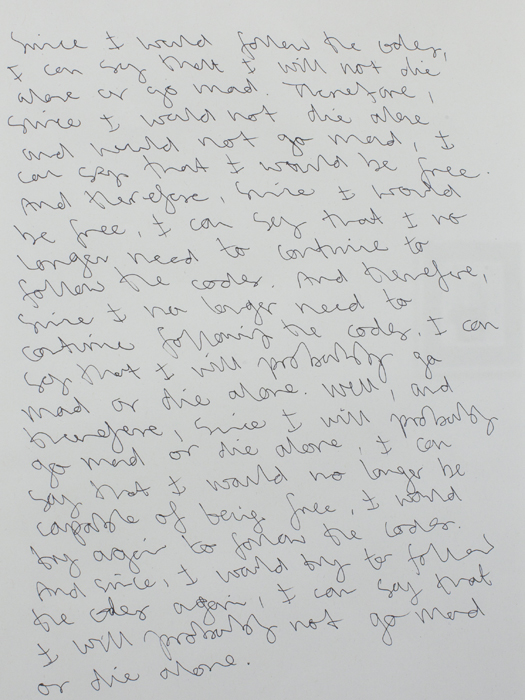 Since I would follow the codes,
I can say that I will not die
alone or go mad. Therefore,
since I would not die alone
and would not go mad, I
can say that I would be free.
And therefore, since I would
be free, I can say that I no
longer need to continue to
follow the codes. And therefore,
since I no longer need to
continue following the codes, I can
say that I will probably go
mad or die alone. Well, and
therefore, since I will probably
go mad or die alone, I can
say that I would no longer be
capable of being free, I would
try again to follow the codes.
And since, I would try to follow
the codes again, I can say that
I will probably not go mad
or die alone.